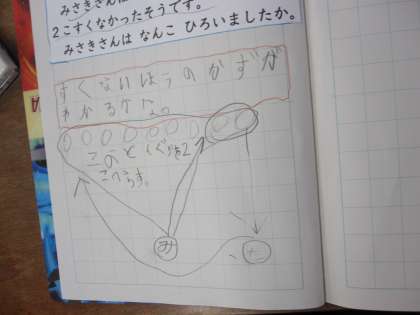 みさきさんは
2こすくなかったそうです。
みさきさんは なんこ ひろいましたか。
すくないほうのかずが
わかるかな。
このどんぐりを2
こへらす。
み